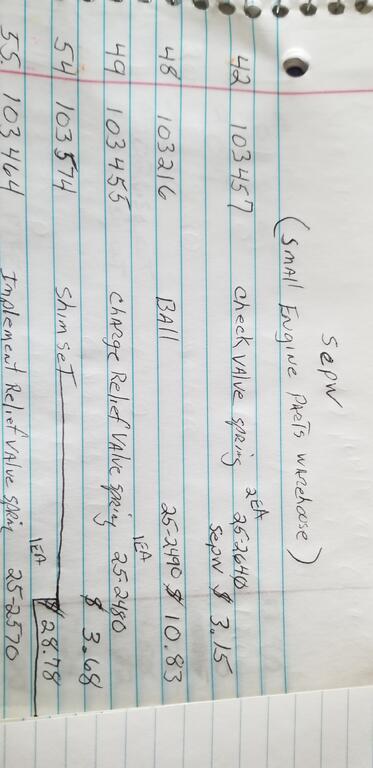 sepw
(Small Engine Parts warehouse)
42 103457 check valve spring 2EA 25-2640
sepw $ 3.15
48 103216 BALL 25-2490 $ 10.83
49 103455 charge Relief valve spring 1EA 25-2480
$ 3.68
54 103574 shim set $28.78
55. 103464 Implement Relief valve spring 1EA 25-2570